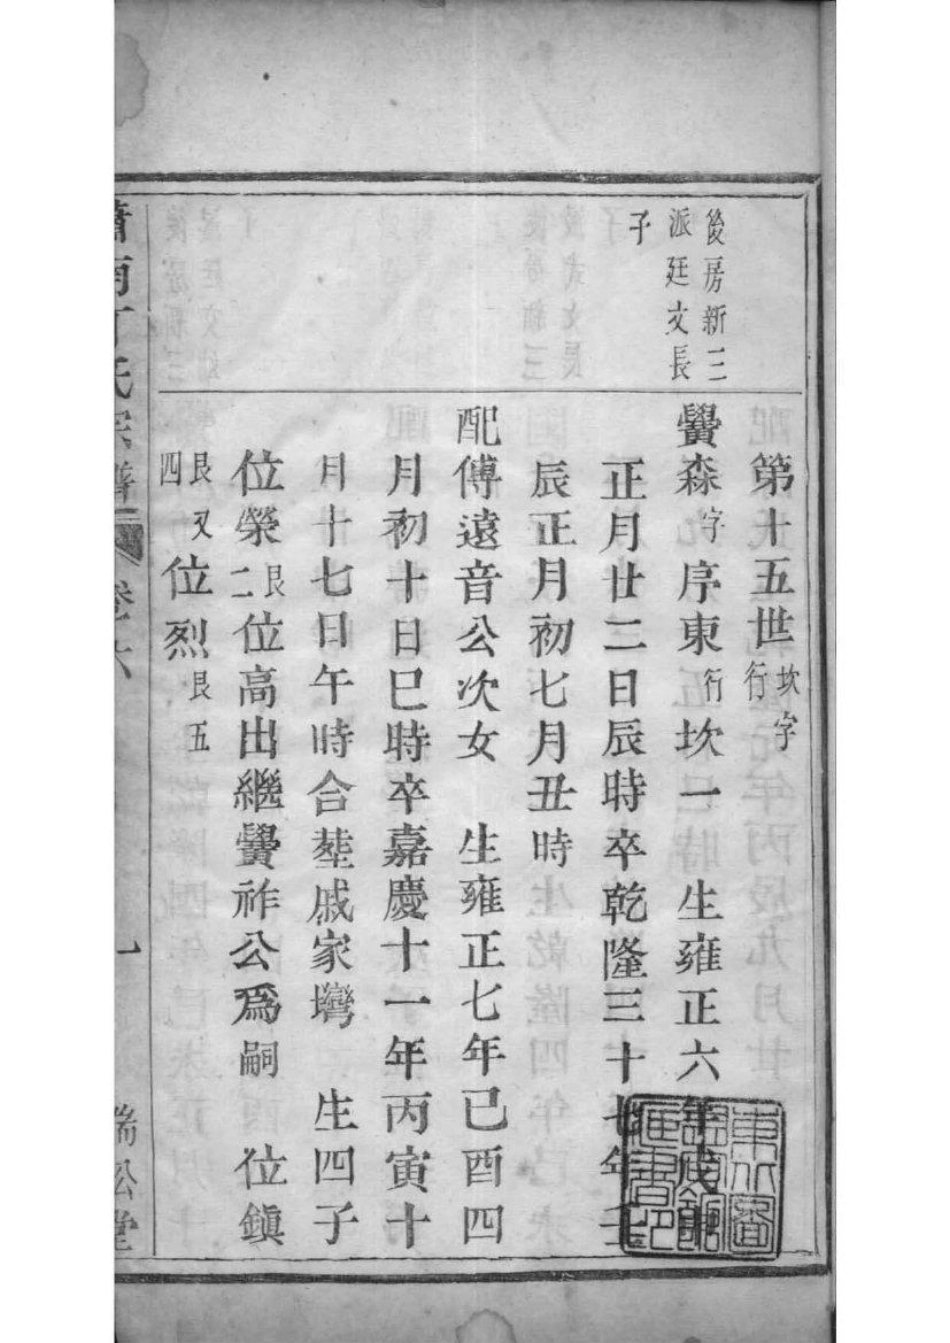 後房新三
派廷文長
子
第十五世坎字行
黌森字序東行坎一 生雍正六年戊
正月廿二日辰時卒乾隆三十七年壬
辰正月初七月丑時
配傅遠音公次女 生雍正七年已酉四
月初十日巳時卒嘉慶十一年丙寅十
月廿七日午時合塟戚家壪 生四子
位榮艮二位高出繼黌祚公爲嗣 位鎮
艮四又位烈艮五
蕭南丁氏宗譜 卷六 一 瑞松堂